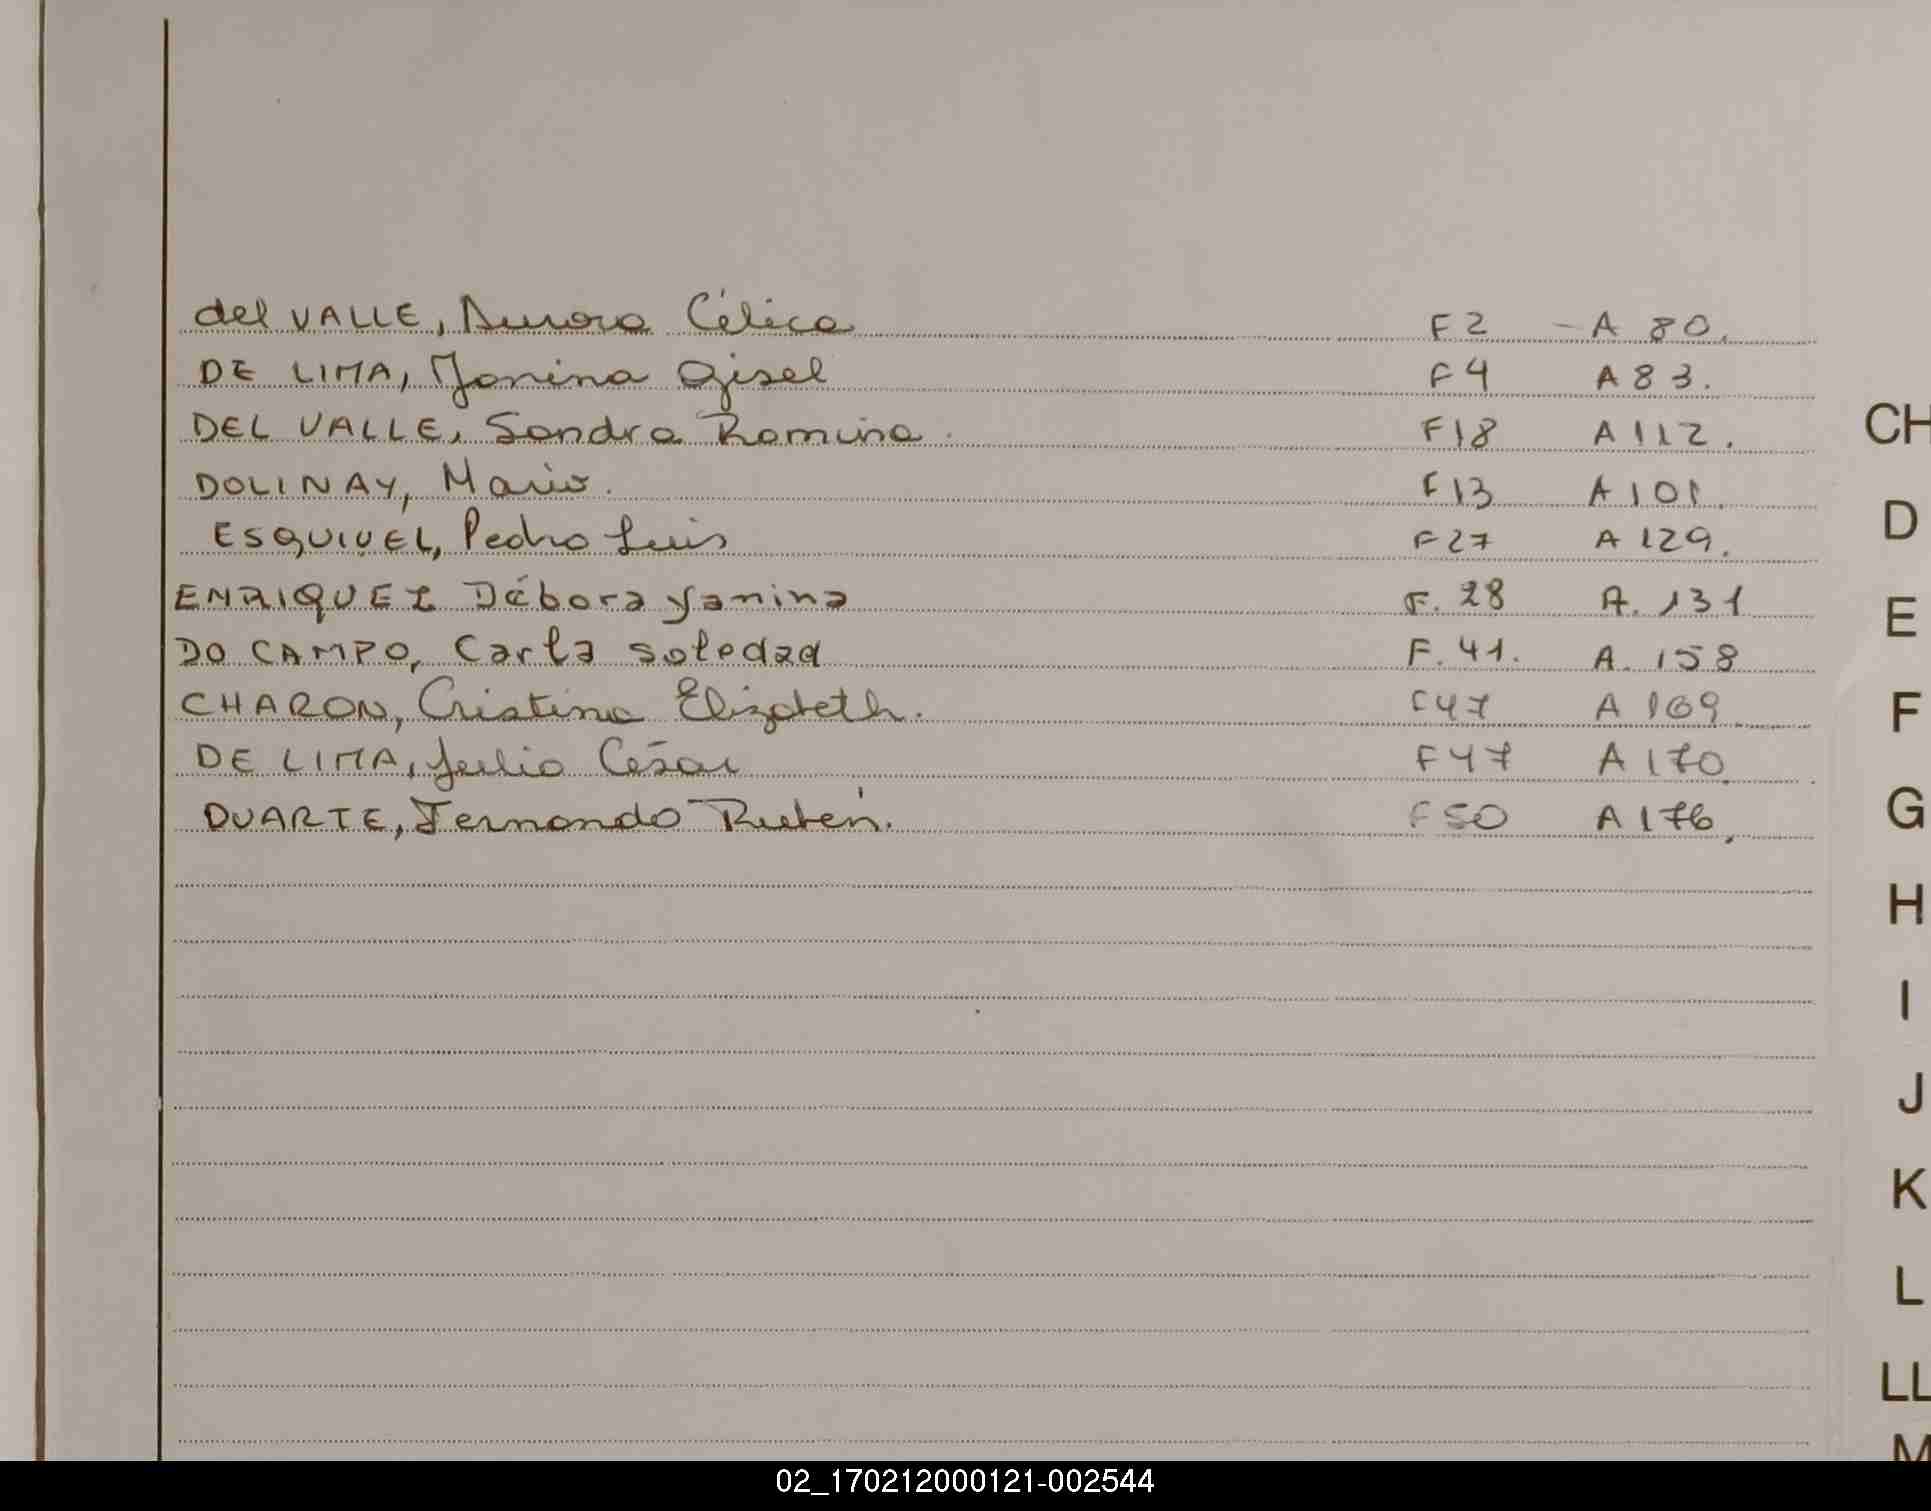 del VALLE, Aurora Célica F2 - A 80.
DE LIMA, Yanina Gisel F4 A 83.
DEL VALLE, Sandra Romina. F18 A 112.
DOLINAY, Mario. F13 A 101.
ESQUIVEL, Pedro Luis F27 A 129.
ENRIQUEZ Débora Yanina F. 28 A. 131
DO CAMPO, Carla Soledad F. 41. A. 158
CHARON, Cristina Elizabeth. F47 A 169
DE LIMA, Julio César F47 A 170.
DUARTE, Fernando Rubén. F50 A 176.
CH
D
E
F
G
H
I
J
K
L
LL
M
02_170212000121-002544